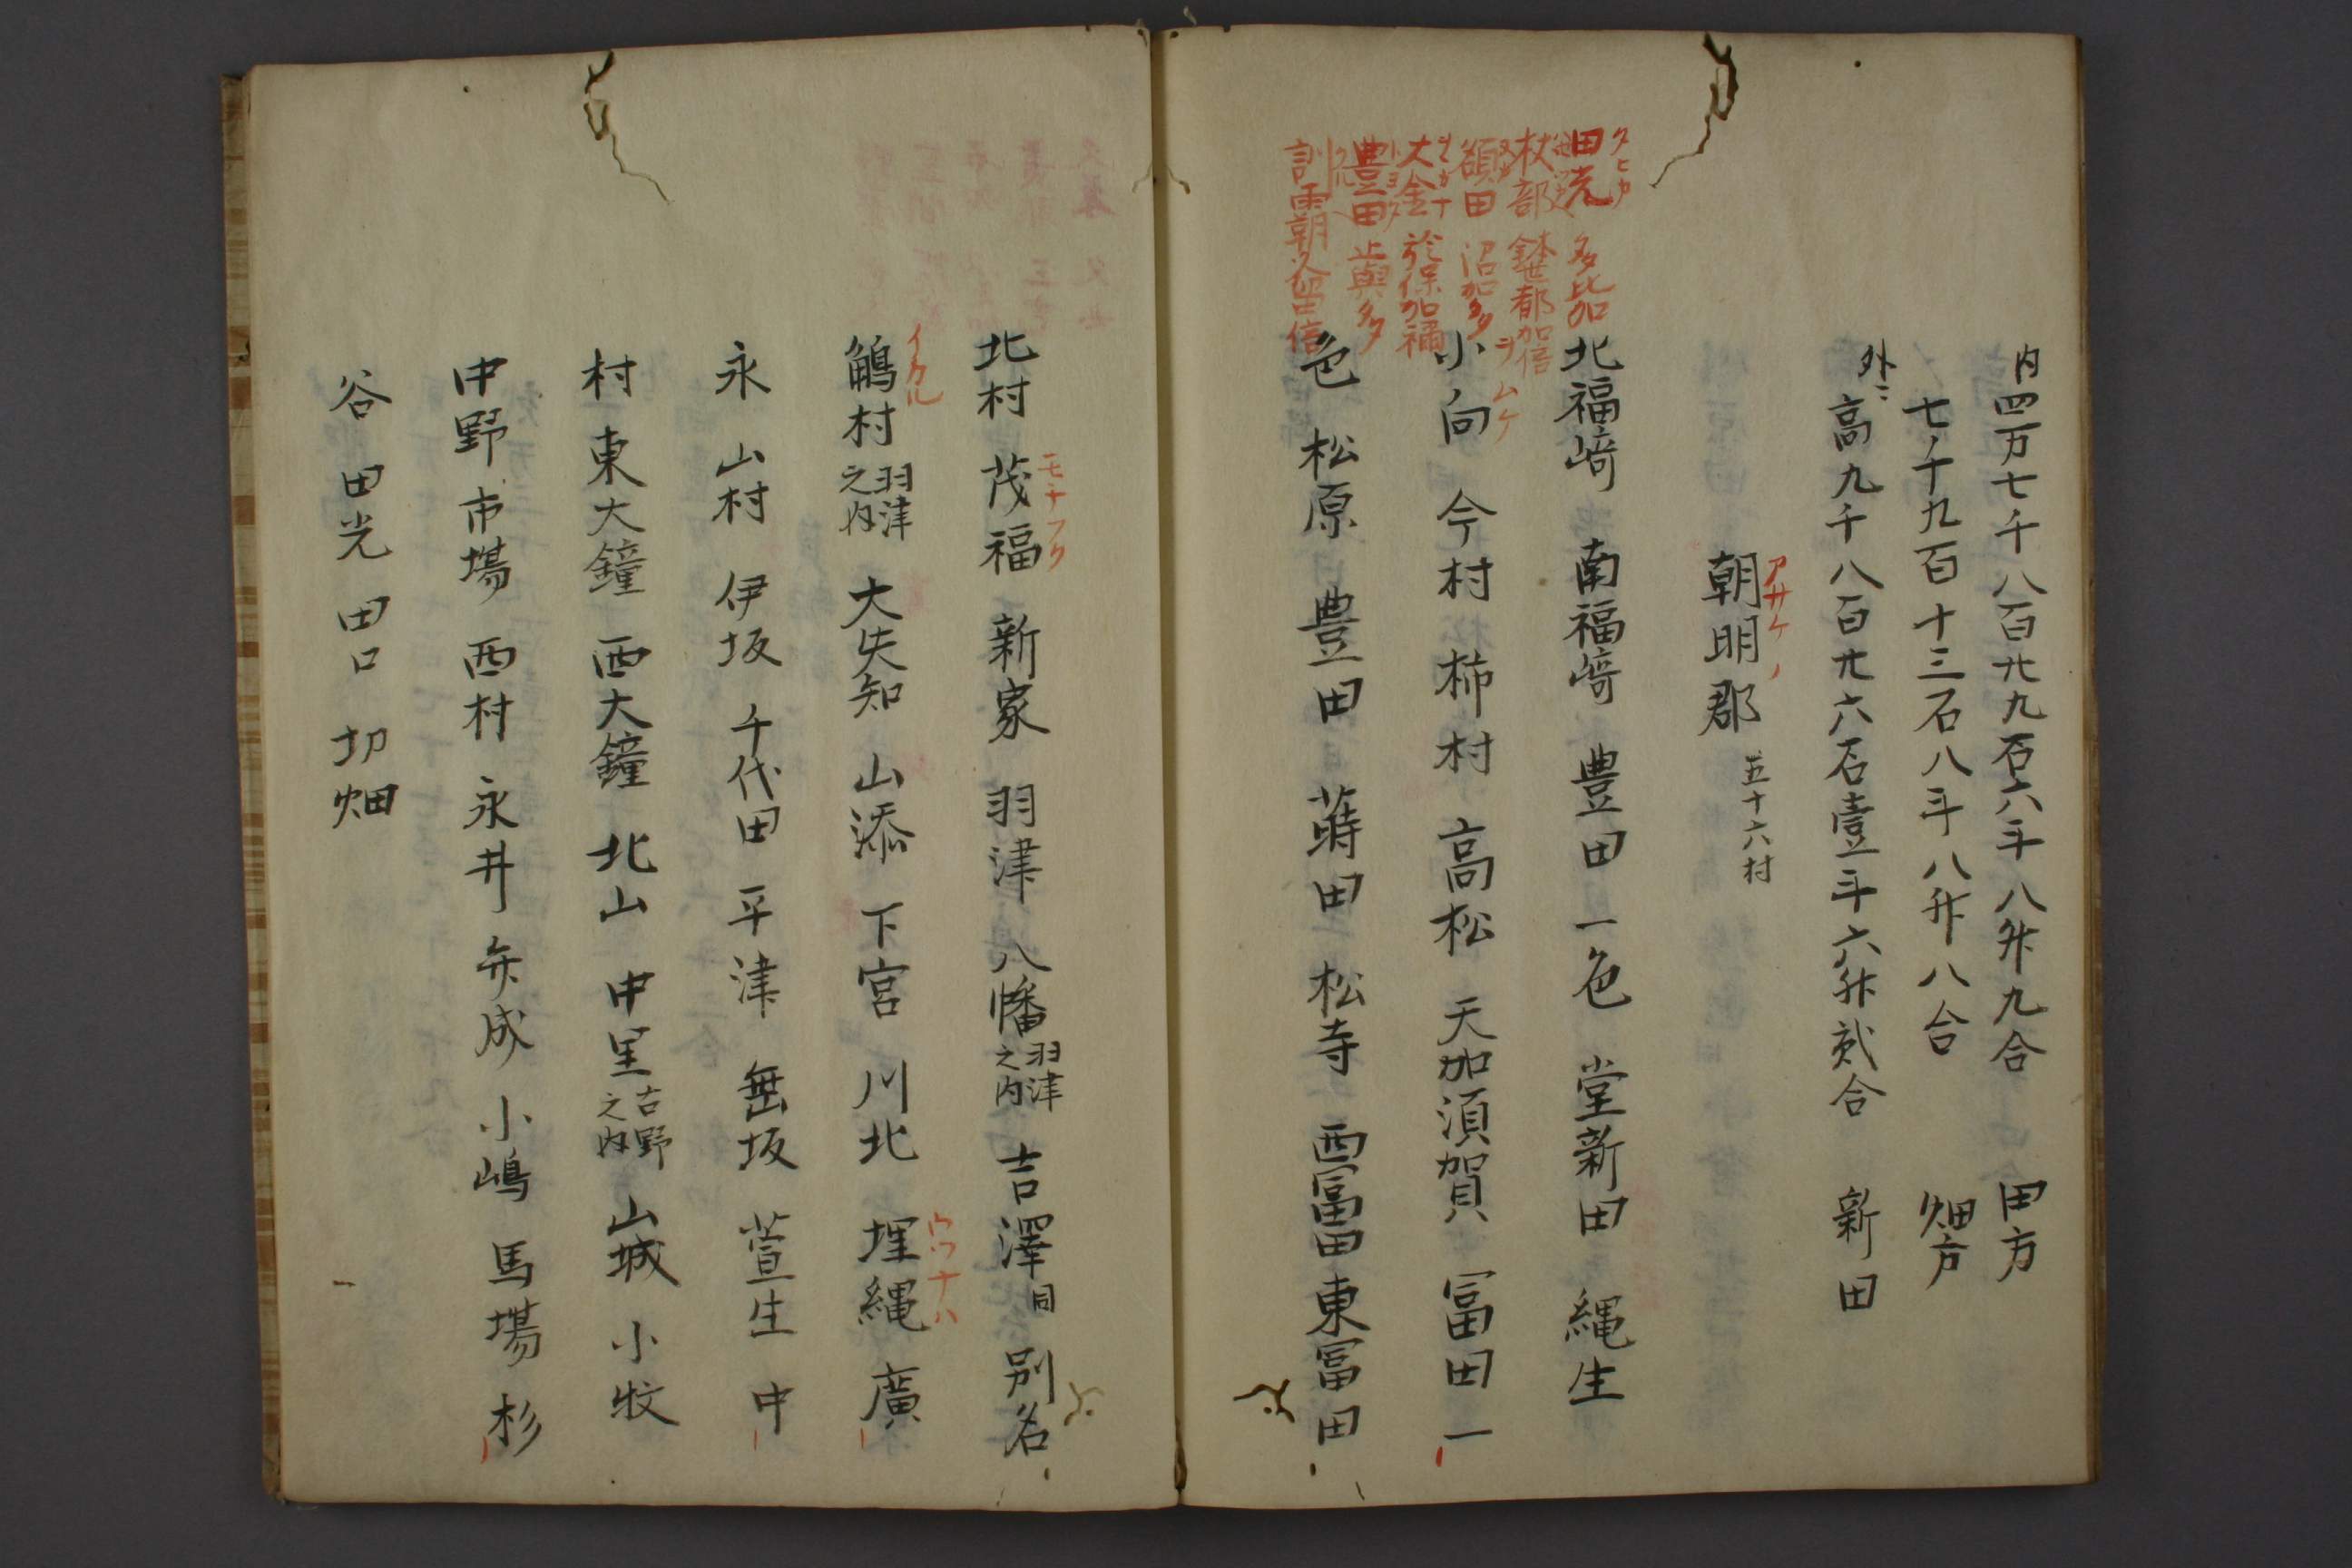 内四万七千八百廿九石六斗八升九合 田方
七千九百十三石八斗八升八合 畑方
外ニ高九千八百廿六石壹斗六升貮合 新田
アサケノ
朝明郡 五十六村
タヒカ
田光 多比加
杖部 鉢世都加倍
ヌカタ
額田 沼加多
ヲホカナ
大金 於保加禰
トヨタ
豊田 止與多
クルヘ
訓覇 久留倍
北福﨑 南福﨑 豊田一色 堂新田 縄生
ヲムケ
小向 今村 柿村 高松 天加須賀 冨田一
色 松原 豊田 蒔田 松寺 西冨田 東冨田
モチフク
北村 茂福 新家 羽津 八幡羽津之内 吉澤同 別名
イカル
鵤村羽津之内 大矢知 山添 下宮 川北 埋縄 廣
ウツナハ
永 山村 伊坂 千代田 平津 垂坂 萱生 中
村 東大鐘 西大鐘 北山 中里古野之内 山城 小牧
中野 市塲 西村 永井 弁成 小嶋 馬塲 杉
谷 田光 田口 切畑